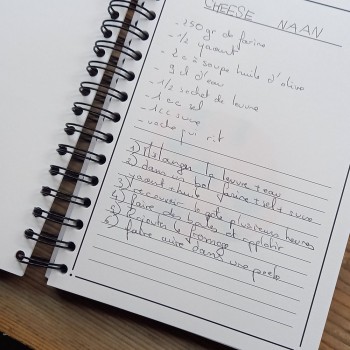 CHEESE NAAN
- 250 gr de farine
- 1/2 yaourt
- 2 c à soupe huile d'olive
- 9 cl d'eau
- 1/2 sachet de levure
- 1 cc sel
- 1 cc sucre
- vache qui rit
1) Mélanger la levure + eau
2) dans un bol farine + sel + sucre
3) yaourt + huile
4) recouvrir plusieurs heures
5) faire des boules et applatir
6) Rajouter le fromage
faire cuire dans une poele